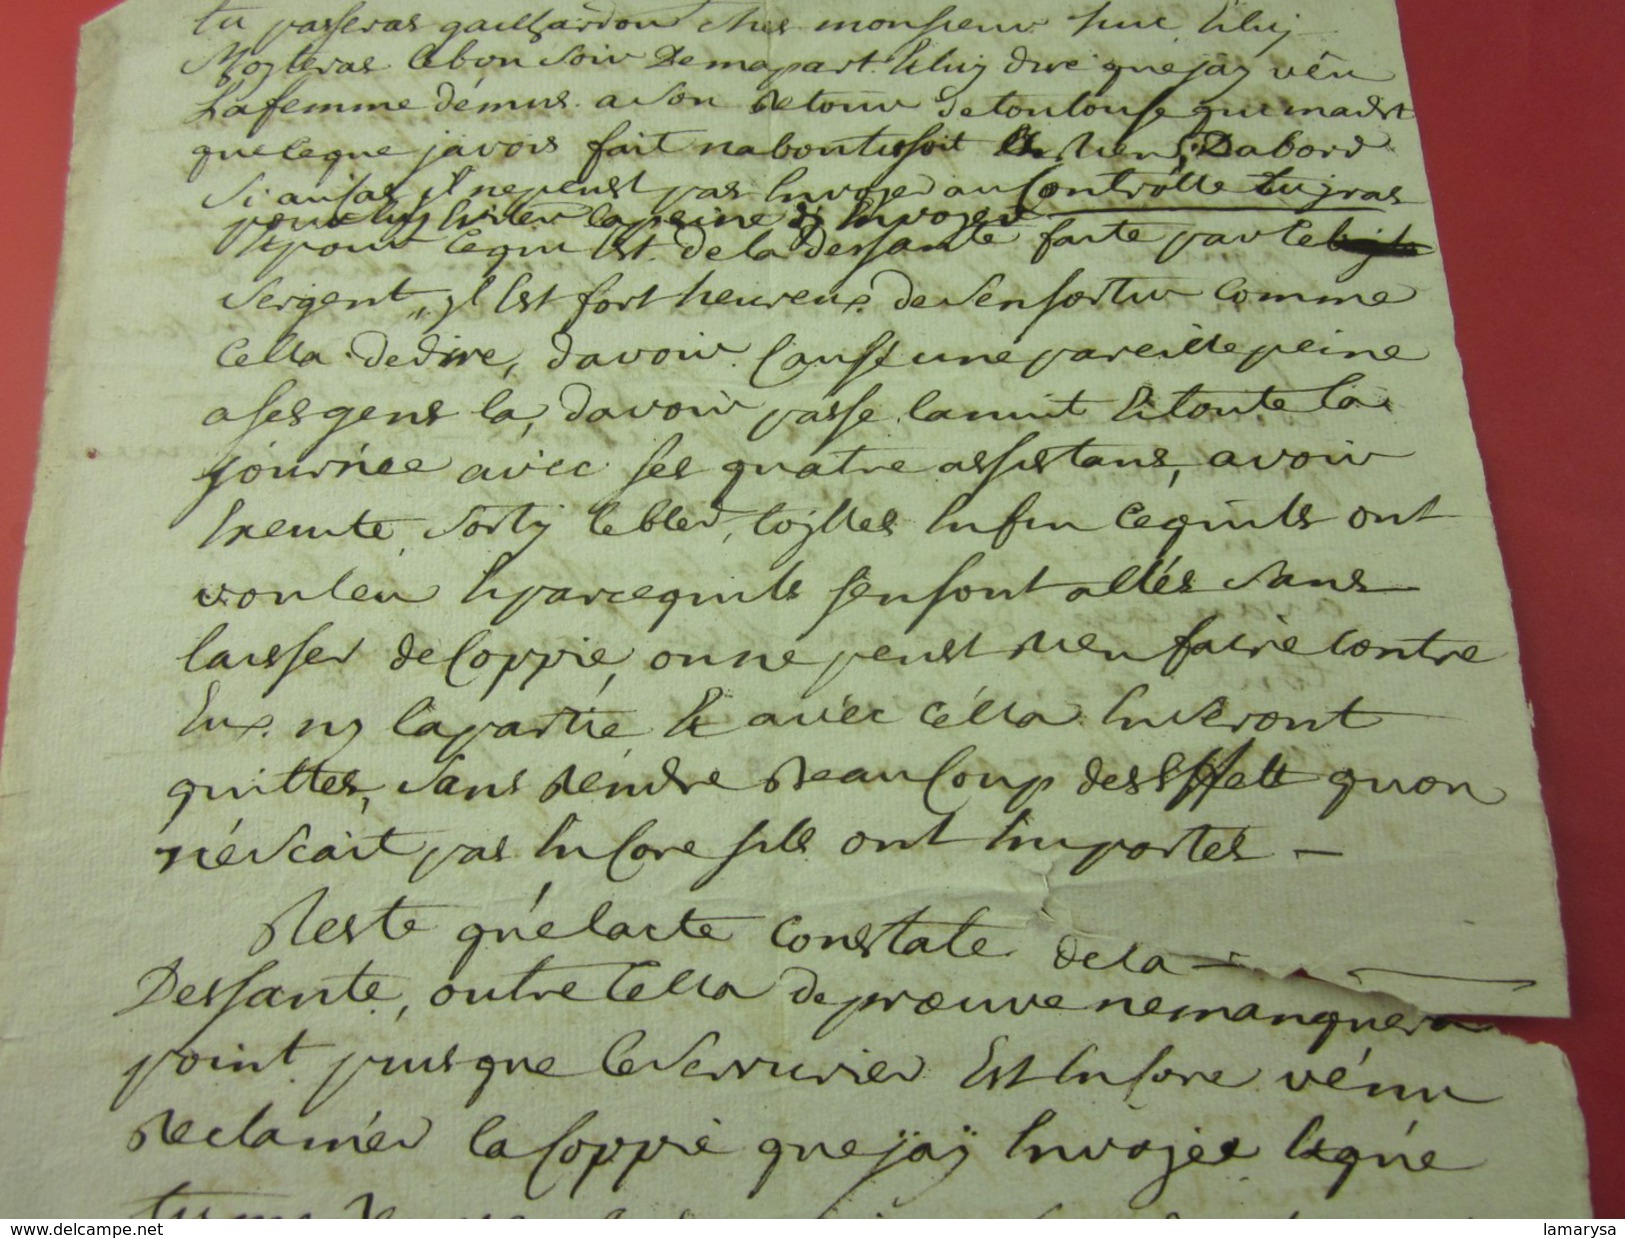 tu passeras gaillardou ches monsieur huc Et luy
Lebon soir Demapart. Et luy dire que jay vëu
Lafemme démus a son Retour de toulouse qui madit
quecequejavois fait naboutissoit Rien. Dabord
Si ausas il nepeust pas Envoyer au Controlle tu jras
pour luy Eviter lapeine d'Envoyer
Et pour cequi Est de la dessante faite par le
Sergent, yl Est fort heureux de Sensortir Comme
Cella dedire, davoir Causé une pareille peine
a ses gens la, davoir passe lanuit Et toute la
journée avec ses quatre assistans, avoir
sorty lebled, Enfin cequils ont
vouleu Eparcequils sensont allés Sans
laisser de Coppie, on ne peust Rien faire contre
Eux. ny lapartie Et avec Célla En Seront
quittes, Sans Rendre Beaucoup des Effett quon
néscait pas Encore sils ont Emportes —
Reste quélacte Constate de la —
Dessante, outre Cella la preuve nemanquera
point puisque leserrurier Est Encore vénu
Reclamér la Coppie quejaÿ Envojée
www.delcampe.net
lamarysa